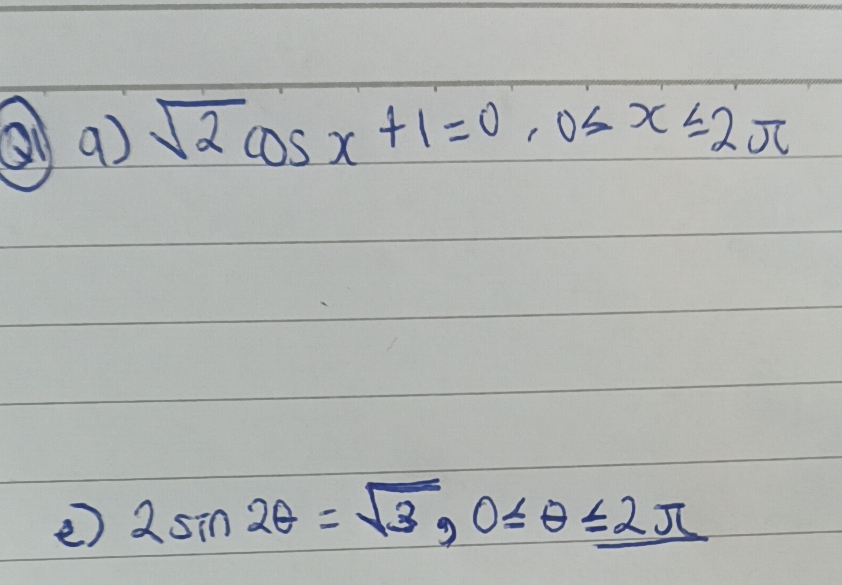 Q1 a) √2 cos x + 1 = 0 , 0 ≤ x ≤ 2π
e) 2 sin 2θ = √3 , 0 ≤ θ ≤ 2π